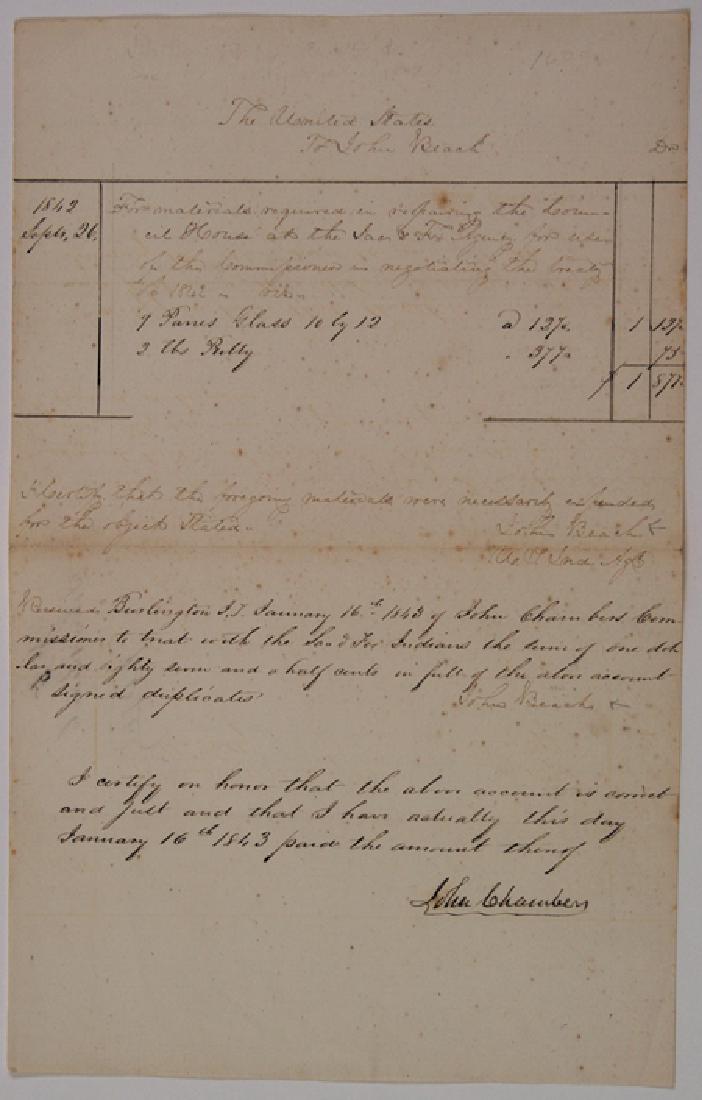 The United States
To John Beach Dr
1842
Septr. 26,
For materials required in repairing the Coun-
cil House at the Sac & Fox Agency for use
of the Commissioner in negotiating the treaty
of 1842 - viz -
9 Panes Glass 10 by 12 a 12½ 1 12½
2 lbs Putty . 37½ 75
1 87½
I certify that the foregoing materials were necessarily expended
for the object stated -
John Beach
U.S. Ind. Agt
Received Burlington I.T. January 16th 1843 of John Chambers Com-
missioner to treat with the Sac & Fox Indians the sum of one dol-
lar and eighty seven and a half cents in full of the above account
Signed duplicates
John Beach
I certify on honor that the above account is correct
and just and that I have actually this day
January 16th 1843 paid the amount thereof
John Chambers